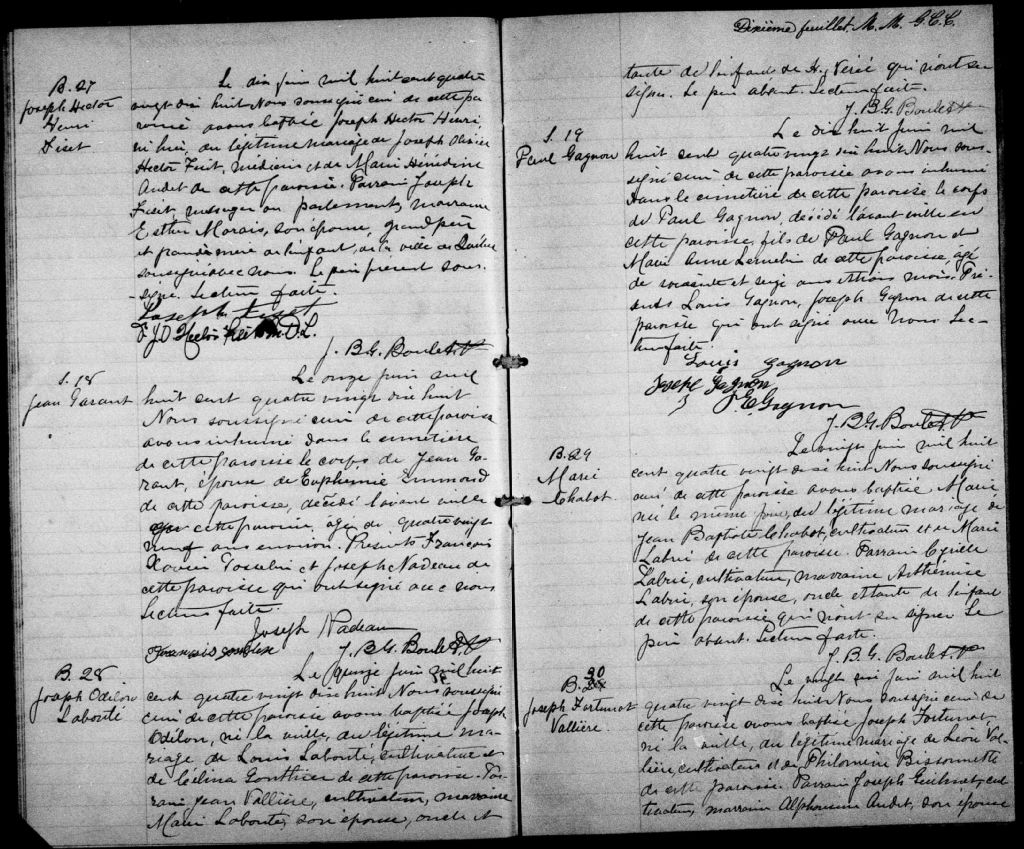 B. 27
Joseph Hector
Henri
Fiset
Le dix juin mil huit cent quatre
vingt dix huit Nous soussigné curé de cette pa
roisse avons baptisé Joseph Hector Henri,
né hier, du légitime mariage de Joseph Olivier
Hector Fiset, médecin et de Marie Hénédine
Audet de cette paroisse. Parrain Joseph
Fiset, messager au parlement, marraine
Esther Marais, son épouse, grand père
et grand mère de l'enfant, de la ville de Québec
soussignés avec nous. Le père présent sous-
-signé. Lecture faite.
Joseph Fiset
F. J. O Hector Fiset M. D. L.
J. B. G. Boulet Ptr
S. 18
Jean Garant
Le onze juin mil
huit cent quatre vingt dix huit
Nous soussigné curé de cette paroisse
avons inhumé dans le cimetière
de cette paroisse le corps de Jean Ga-
rant, époux de Euphémie Emmond
de cette paroisse, décédé l'avant veille
en cette paroisse, âgé de quatre vingt
neuf ans environ. Présents François
Xavier Gosselin et Joseph Nadeau de
cette paroisse qui ont signé avec nous
Lecture faite.
Joseph Nadeau
Francis Gosselin
J. B. G. Boulet Ptr
B. 28
Joseph Odilon
Labonté
Le quinze juin mil huit
cent quatre vingt dix huit Nous soussigné
curé de cette paroisse avons baptisé Joseph
Odilon, né la veille, du légitime ma-
riage de Louis Labonté, cultivateur et
de Célina Gonthier de cette paroisse. Par-
rain Jean Vallière, cultivateur, marraine
Marie Labonté, son épouse, oncle et
Dixième feuillet. M. M. G. C. C.
tante de l'enfant de H. Nérée qui n'ont su
signer. Le père absent. Lecture faite.
J. B. G. Boulet Ptr
S. 19
Paul Gagnon
Le dix huit juin mil
huit cent quatre vingt dix huit Nous sous-
signé curé de cette paroisse avons inhumé
dans le cimetière de cette paroisse le corps
de Paul Gagnon, décédé l'avant veille en
cette paroisse, fils de Paul Gagnon et
Marie Anne Lemelin de cette paroisse, âgé
de soixante et seize ans et trois mois. Pré-
sents Louis Gagnon, Joseph Gagnon de cette
paroisse qui ont signé avec nous Lec-
ture faite.
Louis Gagnon
Joseph Gagnon
J E Gagnon
J. B. G. Boulet Ptr
B. 29
Marie
Chabot
Le vingt juin mil huit
cent quatre vingt dix huit Nous soussigné
curé de cette paroisse avons baptisé Marie
née le même jour, du légitime mariage de
Jean Baptiste Chabot, cultivateur et de Marie
Labrie de cette paroisse. Parrain Cyrille
Labrie, cultivateur, marraine Arthémise
Labrie, son épouse, oncle et tante de l'enfant
de cette paroisse qui n'ont su signer. Le
père absent. Lecture faite.
J. B. G. Boulet Ptr
B. 30
Joseph Fortunat
Vallière.
Le vingt six juin mil huit
quatre vingt dix huit Nous soussigné curé de
cette paroisse avons baptisé Joseph Fortunat,
né la veille, du légitime mariage de Léon Val-
lière, cultivateur et de Philomène Bissonnette
de cette paroisse. Parrain Joseph Guilmet, cul-
tivateur, marraine Alphonsine Audet, son épouse